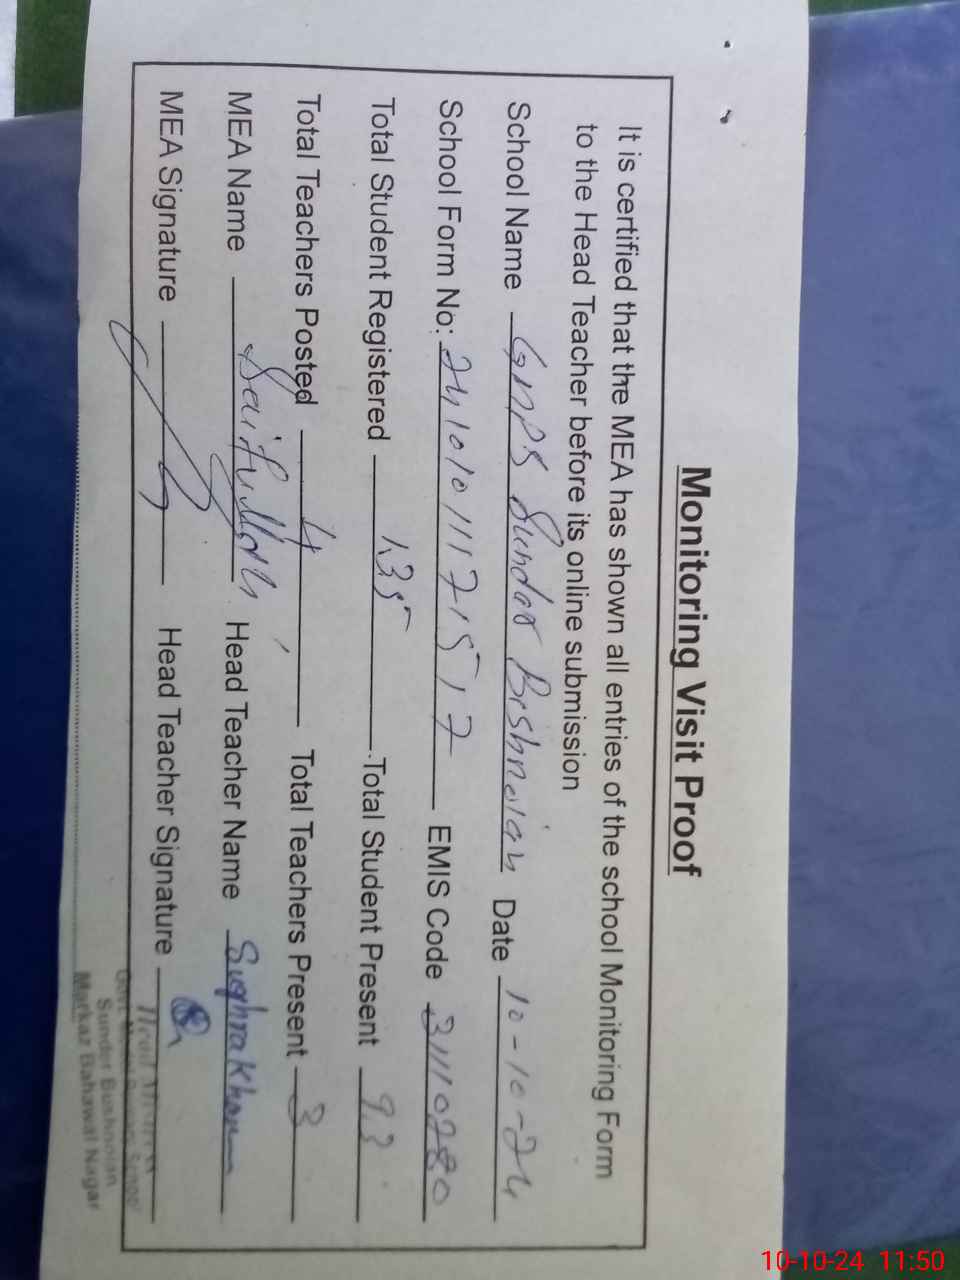 Monitoring Visit Proof
It is certified that the MEA has shown all entries of the school Monitoring Form
to the Head Teacher before its online submission
School Name GMPS Sundar Bishnoian Date 10-10-24
School Form No: EMIS Code 31110280
Total Student Registered 135 Total Student Present 93
Total Teachers Posted 4 Total Teachers Present 3
MEA Name Saifullah Head Teacher Name Sughra Khanum
MEA Signature Head Teacher Signature
Head
Govt. School
Sunder Bushnoian
Markaz Bahawal Nagar
10-10-24 11:50